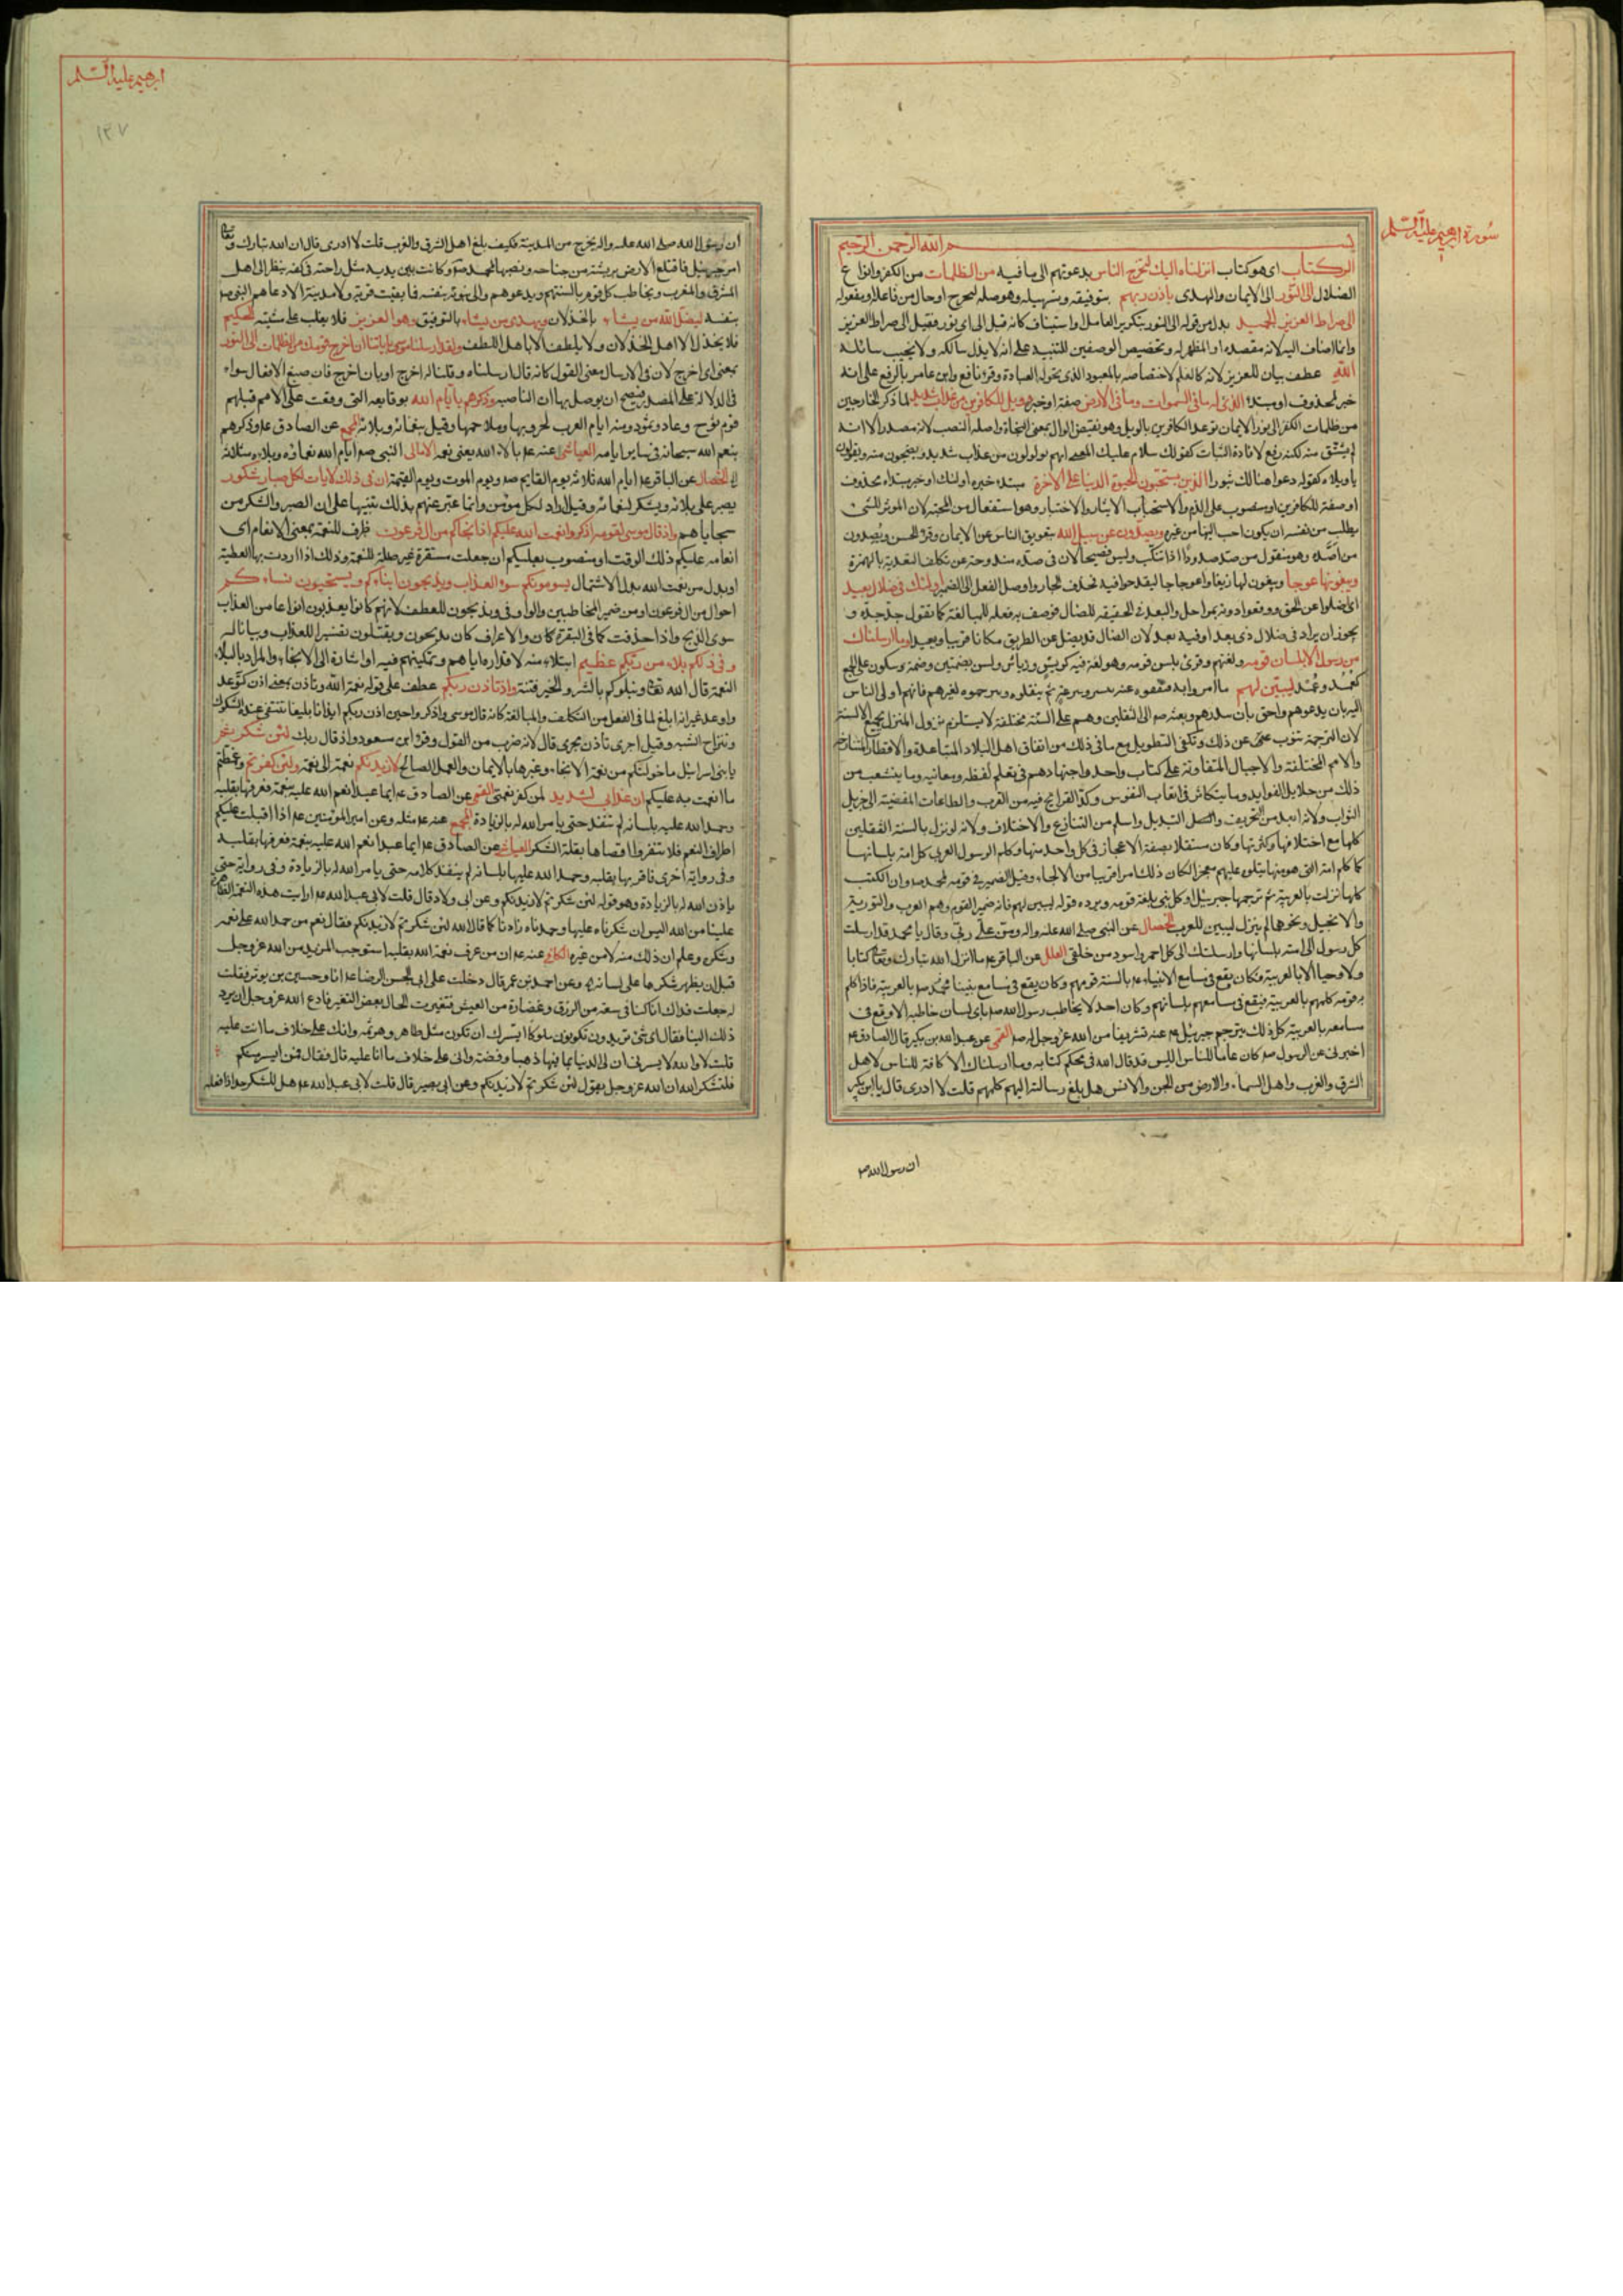 سورة ابرهيم عليه السلم
بسم الله الرحمن الرحيم
الر كتاب اى هو كتاب انزلناه اليك لتخرج الناس بدعوتهم الى ما فيه من الظلمات من الكفر وانواع
الضلال الى النور الى الايمان والهدى باذن ربهم بتوفيقه وتسهيله وهو صلة لتخرج او حال من فاعله او مفعوله
الى صراط العزيز الحميد بدل من قوله الى النور بتكرير العامل او استيناف كانه قيل الى اى نور فقيل الى صراط العزيز
وانما اضاف اليه لانه مقصده او المظهر له وتخصيص الوصفين للتنبيه على انه لا يذل سالكه ولا يخيب سائله
الله عطف بيان للعزيز لانه كالعلم لاختصاصه بالمعبود الذى يحق له العبادة وقرا نافع وابن عامر بالرفع على انه
خبر لمحذوف او مبتدا الذى له ما فى السموات وما فى الارض صفة او خبره وويل للكافرين من عذاب شديد لما ذكر الخارجين
من ظلمات الكفر الى نور الايمان توعد الكافرين بالويل وهو نقيض الوال بمعنى النجاة واصله النصب لانه مصدر الا انه
لم يشتق منه لكنه رفع لافادة الثبات كقولك سلام عليك المعنى انهم يولولون من عذاب شديد ويضجون منه ويقولون
يا ويلاه كقوله دعوا هنالك ثبورا الذين يستحبون الحيوة الدنيا على الاخرة مبتدء خبره اولئك او خبر مبتداء محذوف
او صفة للكافرين او منصوب على الذم والاستحباب الايثار والاختيار وهو استفعال من المحبة لان الموثر للشئ
يطلب من نفسه ان يكون احب اليها من غيره ويصدون عن سبيل الله بتعويق الناس عن الايمان وقرا الحسن ويصدون
من اصده وهو منقول من صد صدودا اذا تنكب وليس فصيحا لان فى صده مندوحة عن تكلف التعدية بالهمزة
ويبغونها عوجا ويبغون لها زيغا واعوجاجا ليقدحوا فيه فحذف الجار واوصل الفعل الى الضمير اولئك فى ضلال بعيد
اى ضلوا عن الحق ووقعوا دونه بمراحل والبعد فى الحقيقة للضال فوصف به فعله للمبالغة كما نقول جد جده و
يجوز ان يراد فى ضلال ذى بعد او فيه بعد لان الضال قد يضل عن الطريق مكانا قريبا وبعيدا وما ارسلناك
من رسول الا بلسان قومه ولغتهم وقرئ بلسن قومه وهو لغة فيه كريش ورياش ولسن بضمتين وضمة وسكون على الجمع
كعمد وعمد ليبين لهم ما امروا به فيفقهوه عنه بيسر وسرعة ثم ينقلوه ويترجموه لغيرهم فانهم اولى الناس
اليه بان يدعوهم واحق بان ينذرهم وبعثه صم الى الثقلين وهم على السنة مختلفة لا يستلزم نزول المنزل بجميع الالسنة
لان الترجمة تنوب عن ذلك وتكفى التطويل مع ما فى ذلك من اتفاق اهل البلاد المتباعدة والاقطار المتنازحة
والامم المختلفة والاجيال المتفاوتة على كتاب واحد واجتهادهم فى تعلم لفظه ومعانيه وما ينشعب من
ذلك من جلايل الفوايد وما يتكاثر فى اتعاب النفوس وكد القرائح فيه من القرب والطاعات المفضية الى جزيل
الثواب ولانه ابعد من التحريف والتبديل واسلم من التنازع والاختلاف ولانه لو نزل بالسنة الثقلين
كلها مع اختلافها وكثرتها وكان مستقلا بصفة الاعجاز فى كل واحد منها وكلم الرسول العربى كل امة بلسانها
كما كلم امته التى هو منها يتلوه عليهم معجزا لكان ذلك امرا قريبا من الالجاء وقيل الضمير فى قومه لمحمد صم وان الكتب
كلها نزلت بالعربية ثم ترجمها جبرئيل او كل نبى بلغة قومه ويرده قوله ليبين لهم فانه ضمير القوم وهم العرب والتورية
والانجيل ونحوها لم ينزل ليبين للعرب الخصال عن النبى صلى الله عليه واله ومن على ربى وقال يا محمد قد ارسلت
كل رسول الى امته بلسانها وارسلتك الى كل احمر واسود من خلقى العلل عن الباقر عم ما انزل الله تبارك وتعالى كتابا
ولا وحيا الا بالعربية فكان يقع فى مسامع الانبياء عم بالسنة قومهم وكان يقع فى مسامع نبينا محمد صم بالعربية فاذا كلم
به قومه كلمهم بالعربية فيقع فى مسامعهم بلسانهم وكان احد لا يخاطب رسول الله صم باى لسان خاطبه الا وقع فى
مسامعه بالعربية كل ذلك يترجم جبرئيل عم عنه تشريفا من الله عز وجل له صم القمى عن عبد الله بن بكير قال الصادق عم
اخبرنى عن الرسول صم كان عاما للناس اليس قد قال الله فى محكم كتابه وما ارسلناك الا كافة للناس لاهل
الشرق والغرب واهل السماء والارض من الجن والانس هل بلغ رسالته اليهم كلهم قلت لا ادرى قال يا ابن بكير
ان رسول الله ص
ابرهيم عليه السلم
١٣٧
ان رسول الله صلى الله عليه واله لم يخرج من المدينة فكيف بلغ اهل الشرق والغرب قلت لا ادرى قال ان الله تبارك وتعالى
امر جبرئيل فاقتلع الارض بريشة من جناحه ونصبها لمحمد صم وكانت بين يديه مثل راحته فى كفه ينظر الى اهل
المشرق والمغرب ويخاطب كل قوم بالسنتهم ويدعوهم الى نبوته بنفسه فما بقيت قرية ولا مدينة الا دعاهم النبى صم
بنفسه ليضل الله من يشاء بالخذلان ويهدى من يشاء بالتوفيق وهو العزيز فلا يغلب على مشيته الحكيم
فلا يخذل الا اهل الخذلان ولا يلطف الا باهل اللطف ولقد ارسلنا موسى باياتنا ان اخرج قومك من الظلمات الى النور
بمعنى اى اخرج لان فى الارسال معنى القول كانه قال ارسلناه وقلنا له اخرج او بان اخرج فان صيغ الافعال سواء
فى الدلالة على المصدر فيصح ان يوصل بها ان الناصبة وذكرهم بايام الله بوقايعه التى وقعت على الامم قبلهم
قوم نوح وعاد وثمود ومنه ايام العرب لحروبها وملاحمها وقيل بنعمائه وبلائه المجمع عن الصادق عم وذكرهم
بنعم الله سبحانه فى ساير ايامه العياشى عنه عم بالاء الله يعنى نعمه الامالى النبى صم ايام الله نعماؤه وبلاؤه ومثلاته
الخصال عن الباقر عم ايام الله ثلاثة يوم القايم صم ويوم الموت ويوم القيمة ان فى ذلك لايات لكل صبار شكور
يصبر على بلائه ويشكر لنعمائه وقيل اراد لكل مومن وانما عبر عنهم بذلك تنبيها على ان الصبر والشكر من
سجاياهم واذ قال موسى لقومه اذكروا نعمت الله عليكم اذ انجاكم من ال فرعون ظرف للنعمة بمعنى الانعام اى
انعامه عليكم ذلك الوقت او منصوب بعليكم ان جعلت مستقرة غير صلة للنعمة وذلك اذا اردت بها العطية
او بدل من نعمت الله بدل الاشتمال يسومونكم سوء العذاب ويذبحون ابناءكم ويستحيون نساءكم
احوال من ال فرعون او من ضمير المخاطبين والواو فى ويذبحون للعطف لانهم كانوا يعذبون انواعا من العذاب
سوى الذبح واذا حذفت كما فى البقرة كان والاعراف كان يذبحون ويقتلون تفسيرا للعذاب وبيانا له
وفى ذلكم بلاء من ربكم عظيم ابتلاء منه لاقداره اياهم وتمكينهم فيه او اشارة الى الانجاء والمراد بالبلاء
النعمة قال الله تعالى ونبلوكم بالشر والخير فتنة واذ تاذن ربكم عطف على قوله نعمة الله وتاذن بمعنى اذن كتوعد
واوعد غير انه ابلغ لما فى الفعل من التكلف والمبالغة كانه قال موسى واذكروا حين اذن ربكم ايذانا بليغا تنتفى عنده الشكوك
وتنزاح الشبه وقيل اجرى تاذن مجرى قال لانه ضرب من القول وقرا ابن مسعود واذ قال ربك لئن شكرتم
يا بنى اسرائيل ما خولتكم من نعمة الانجاء وغيرها بالايمان والعمل الصالح لازيدنكم نعمة الى نعمة ولئن كفرتم وغمطتم
ما انعمت به عليكم ان عذابى لشديد لمن كفر نعمتى القمى عن الصادق عم ايما عبد انعم الله عليه بنعمة فعرفها بقلبه
وحمد الله عليه بلسانه لم تنفد حتى يامر الله له بالزيادة المجمع عنه عم مثله وعن امير المؤمنين عم اذا اقبلت عليكم
اطراف النعم فلا تنفروا اقصاها بقلة الشكر العياشى عن الصادق عم ايما عبد انعم الله عليه بنعمة فعرفها بقلبه
وفى رواية اخرى فاقر بها بقلبه وحمد الله عليها بلسانه لم ينفد كلامه حتى يامر الله له بالزيادة وفى رواية حتى
ياذن الله له بالزيادة وهو قوله لئن شكرتم لازيدنكم وعن ابى ولاد قال قلت لابى عبد الله عم ارايت هذه النعمة الظاهرة
علينا من الله اليس ان شكرناه عليها وحمدناه زادنا كما قال الله لئن شكرتم لازيدنكم فقال نعم من حمد الله على نعمه
وشكره وعلم ان ذلك منه لا من غيره الكافى عنه عم ان من عرف نعمة الله بقلبه استوجب المزيد من الله عز وجل
قبل ان يظهر شكرها على لسانه وعن احمد بن عمر قال دخلت على ابى الحسن الرضا عم انا وحسين بن ثوير فقلت
له جعلت فداك انا كنا فى سعة من الرزق وغضارة من العيش فتغيرت الحال بعض التغير فادع الله عز وجل ان يرد
ذلك الينا فقال اى شئ تريدون تكونون ملوكا ايسرك ان تكون مثل طاهر وهرثمة وانك على خلاف ما انت عليه
قلت لا والله لا يسرنى ان لى الدنيا بما فيها ذهبا وفضة وانى على خلاف ما انا عليه قال فقال فمن ايسر منكم
فلتشكر الله ان الله عز وجل يقول لئن شكرتم لازيدنكم وعن ابى بصير قال قلت لابى عبد الله عم هل للشكر حد اذا فعله